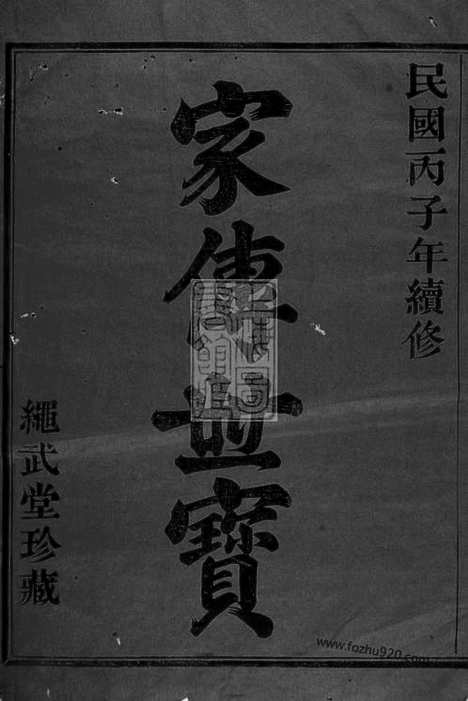 民國丙子年續修
家傳世寶
繩武堂珍藏
www.fozhu920.com